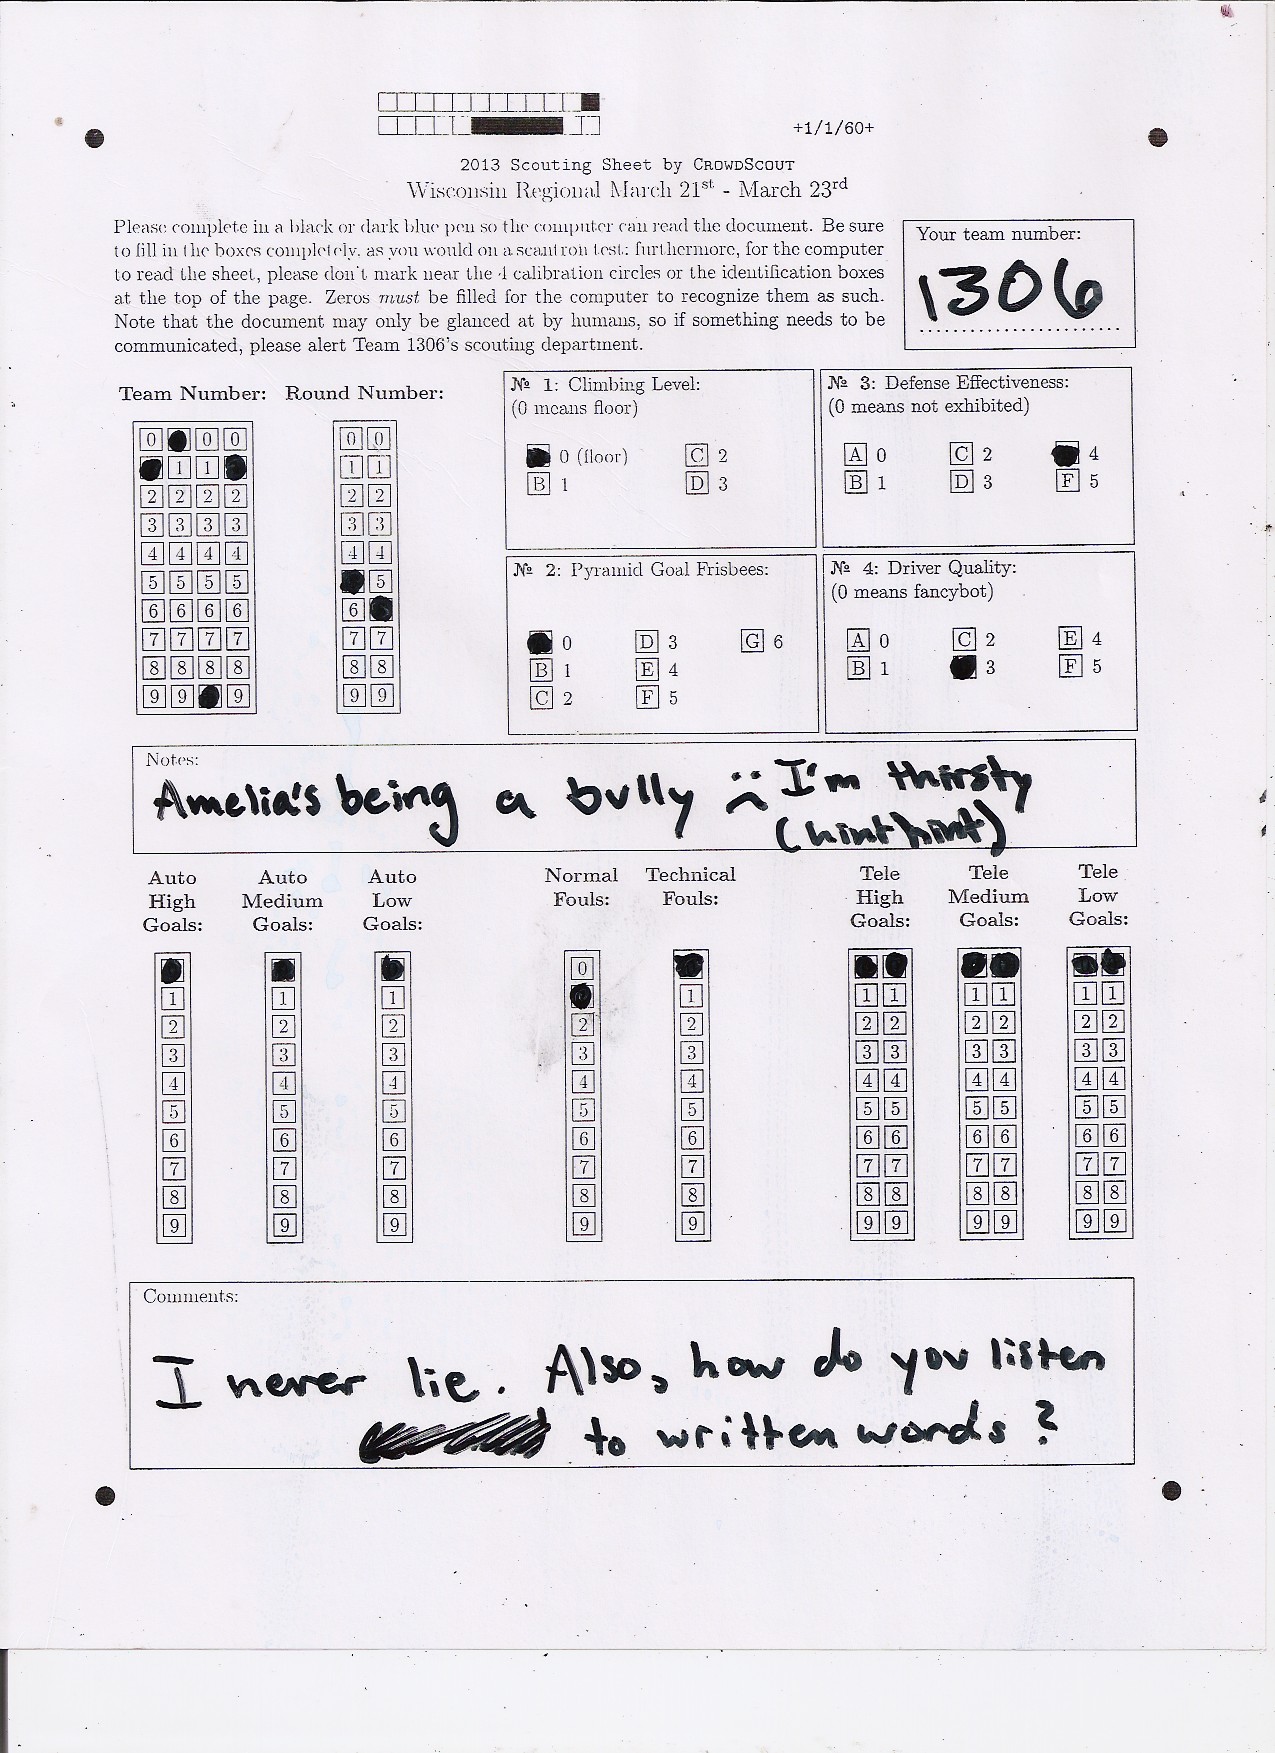 +1/1/60+
2013 Scouting Sheet by CROWDSCOUT
Wisconsin Regional March 21st - March 23rd
Please complete in a black or dark blue pen so the computer can read the document. Be sure
to fill in the boxes completely, as you would on a scantron test; furthermore, for the computer
to read the sheet, please don't mark near the 4 calibration circles or the identification boxes
at the top of the page. Zeros must be filled for the computer to recognize them as such.
Note that the document may only be glanced at by humans, so if something needs to be
communicated, please alert Team 1306's scouting department.
Your team number:
1306
Team Number: Round Number:
0 0 0 0 0
1 1 1 1
2 2 2 2 2 2
3 3 3 3 3 3
4 4 4 4 4 4
5 5 5 5 5
6 6 6 6 6
7 7 7 7 7 7
8 8 8 8 8 8
9 9 9 9 9
№ 1: Climbing Level:
(0 means floor)
0 (floor) C 2
B 1 D 3
№ 3: Defense Effectiveness:
(0 means not exhibited)
A 0 C 2 4
B 1 D 3 F 5
№ 2: Pyramid Goal Frisbees:
0 D 3 G 6
B 1 E 4
C 2 F 5
№ 4: Driver Quality:
(0 means fancybot)
A 0 C 2 E 4
B 1 3 F 5
Notes:
Amelia's being a bully :( I'm thirsty
(hint hint)
Auto Auto Auto Normal Technical Tele Tele Tele
High Medium Low Fouls: Fouls: High Medium Low
Goals: Goals: Goals: Goals: Goals: Goals:
0
1 1 1 1 1 1 1 1 1 1
2 2 2 2 2 2 2 2 2 2 2
3 3 3 3 3 3 3 3 3 3 3
4 4 4 4 4 4 4 4 4 4 4
5 5 5 5 5 5 5 5 5 5 5
6 6 6 6 6 6 6 6 6 6 6
7 7 7 7 7 7 7 7 7 7 7
8 8 8 8 8 8 8 8 8 8 8
9 9 9 9 9 9 9 9 9 9 9
Comments:
I never lie. Also, how do you listen
to written words?